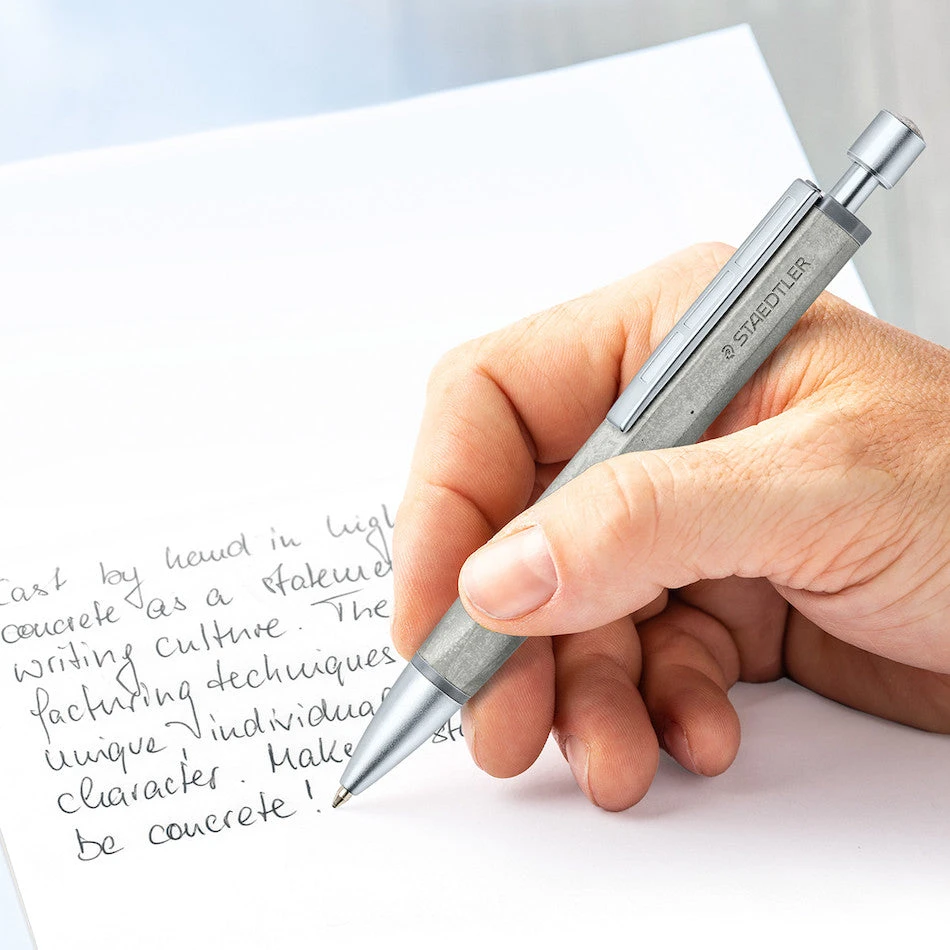 STAEDTLER
Cast by hand in high
concrete as a stateme
writing culture. The
facturing techniques
unique, individua
character. Make st
be concrete!